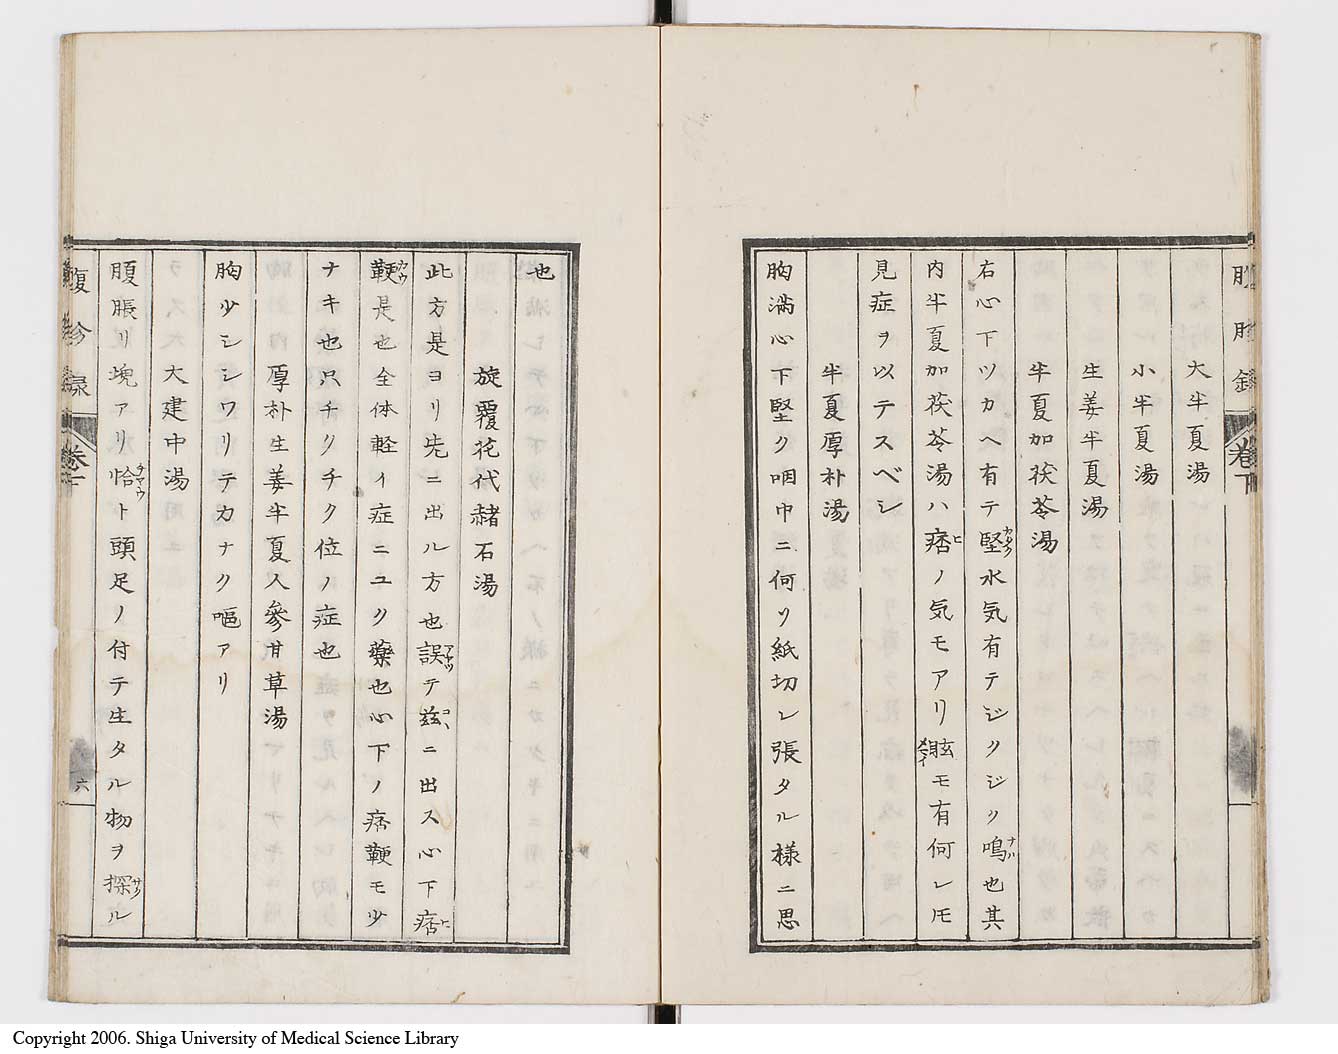 大半夏湯
小半夏湯
生姜半夏湯
半夏加茯苓湯
右心下ツカヘ有テ堅水気有テジクジク鳴也其
内半夏加茯苓湯ハ痞ノ気モアリ眩モ有何レモ
見症ヲ以テスベシ
半夏厚朴湯
胸満心下堅ク咽中ニ何ソ紙切レ張タル様ニ思
也
旋覆花代赭石湯
此方是ヨリ先ニ出ル方也誤テ茲ニ出ス心下痞
鞕是也全体軽イ症ニユク藥也心下ノ痞鞕モ少
ナキ也只チクチク位ノ症也
厚朴生姜半夏人參甘草湯
胸少シシワリテカナク嘔アリ
大建中湯
腹脹リ塊アリ恰ト頭足ノ付テ生タル物ヲ探ル
腹診録
卷下
六
Copyright 2006. Shiga University of Medical Science Library